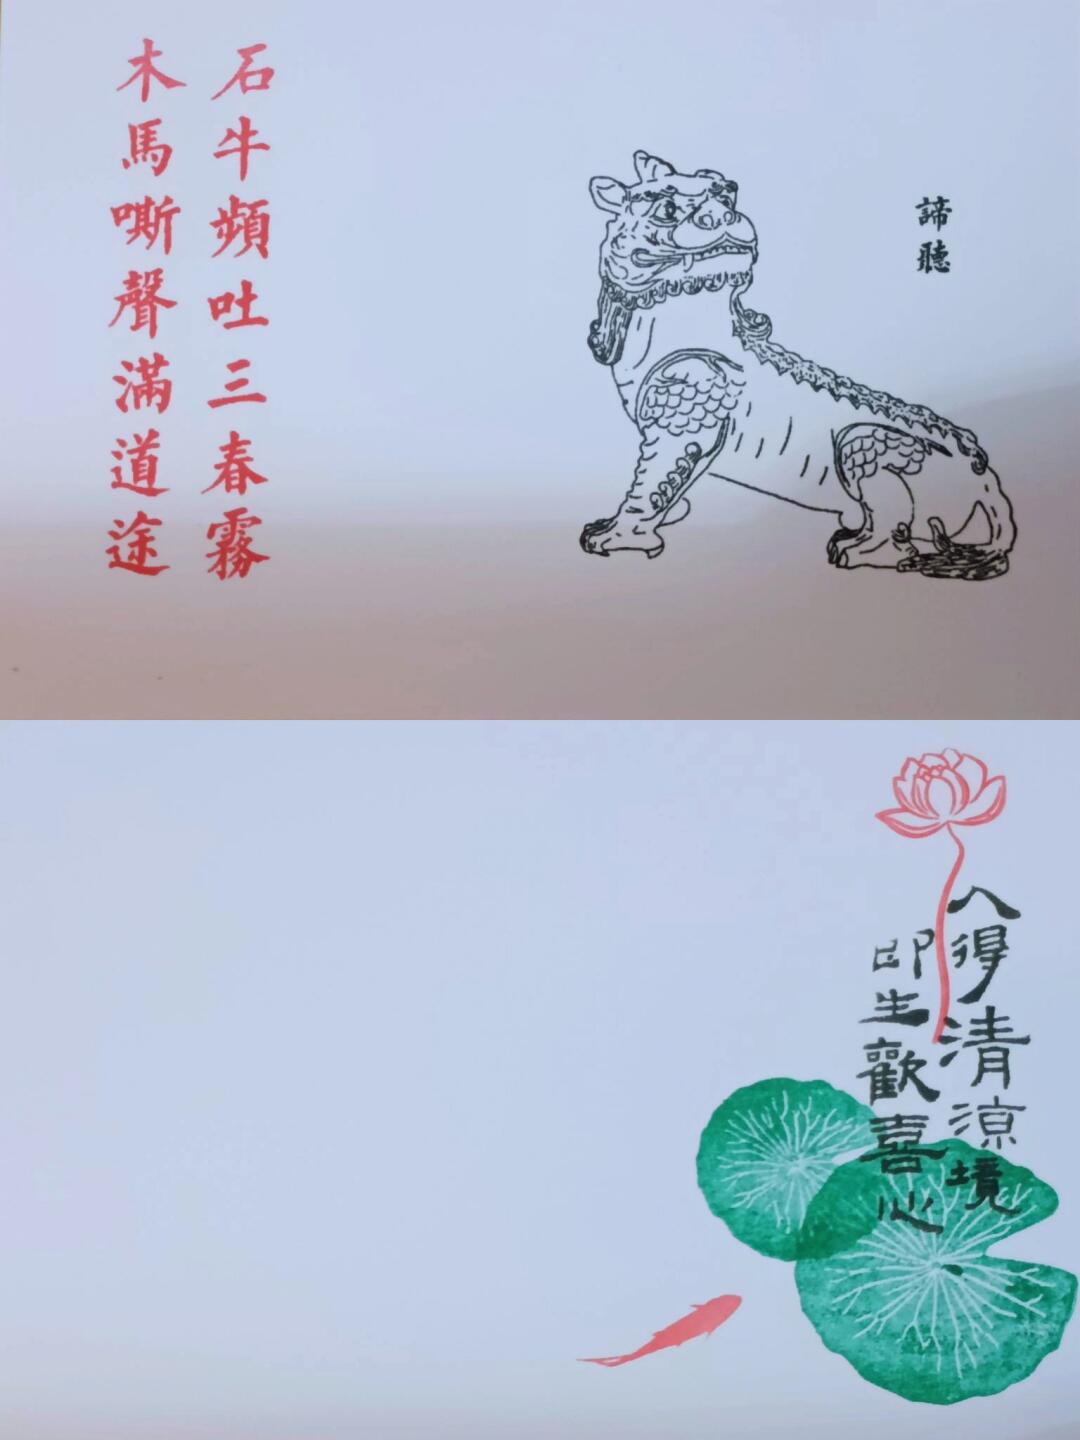 諦聽
石牛頻吐三春霧
木馬嘶聲滿道途
入得清涼境
即生歡喜心